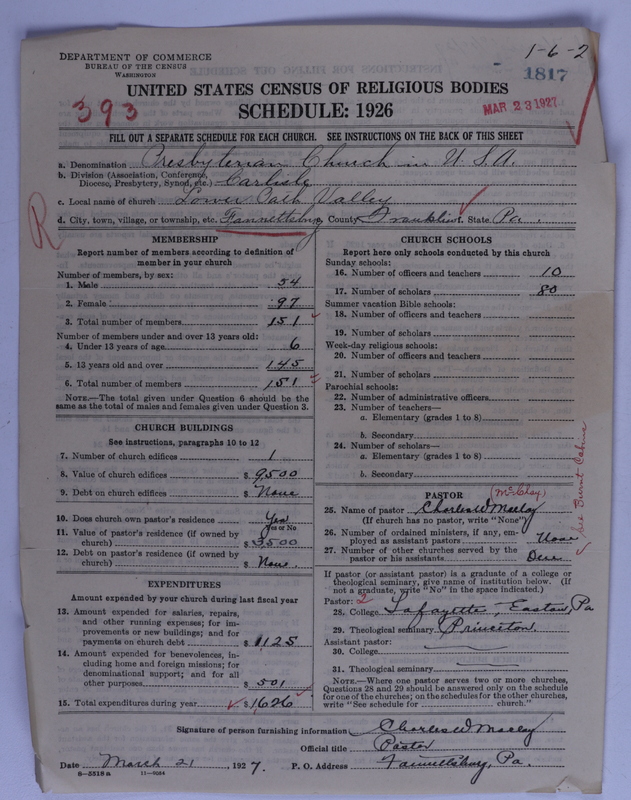 DEPARTMENT OF COMMERCE
BUREAU OF THE CENSUS
WASHINGTON
1-6-2
1817
393
MAR 23 1927
UNITED STATES CENSUS OF RELIGIOUS BODIES
SCHEDULE: 1926
FILL OUT A SEPARATE SCHEDULE FOR EACH CHURCH. SEE INSTRUCTIONS ON THE BACK OF THIS SHEET
a. Denomination Presbyterian Church in U.S.A.
b. Division (Association, Conference, Diocese, Presbytery, Synod, etc.) Carlisle
c. Local name of church Lower Path Valley
d. City, town, village, or township, etc. Fannettsburg County Franklin State Pa.
R
MEMBERSHIP
Report number of members according to definition of
member in your church
Number of members, by sex:
1. Male 54
2. Female 97
3. Total number of members 151
Number of members under and over 13 years old:
4. Under 13 years of age 6
5. 13 years old and over 145
6. Total number of members 151
NOTE.—The total given under Question 6 should be the
same as the total of males and females given under Question 3.
CHURCH BUILDINGS
See instructions, paragraphs 10 to 12
7. Number of church edifices 1
8. Value of church edifices $ 9500
9. Debt on church edifices $ None
10. Does church own pastor's residence Yes
Yes or No
11. Value of pastor's residence (if owned by
church) $ 3500
12. Debt on pastor's residence (if owned by
church) $ None.
EXPENDITURES
Amount expended by your church during last fiscal year
13. Amount expended for salaries, repairs,
and other running expenses; for im-
provements or new buildings; and for
payments on church debt $ 1125
14. Amount expended for benevolences, in-
cluding home and foreign missions; for
denominational support; and for all
other purposes $ 501
15. Total expenditures during year $ 1626
CHURCH SCHOOLS
Report here only schools conducted by this church
Sunday schools:
16. Number of officers and teachers 10
17. Number of scholars 80
Summer vacation Bible schools:
18. Number of officers and teachers
19. Number of scholars
Week-day religious schools:
20. Number of officers and teachers
21. Number of scholars
Parochial schools:
22. Number of administrative officers
23. Number of teachers—
a. Elementary (grades 1 to 8)
b. Secondary
24. Number of scholars—
a. Elementary (grades 1 to 8)
b. Secondary
PASTOR
(McClay)
25. Name of pastor Charles W Maclay
(If church has no pastor, write "None")
26. Number of ordained ministers, if any, em-
ployed as assistant pastors None
27. Number of other churches served by the
pastor or his assistants One
see Burnt Cabins
If pastor (or assistant pastor) is a graduate of a college or
theological seminary, give name of institution below. (If
not a graduate, write "No" in the space indicated.)
Pastor: 2
28. College Lafayette, Easton, Pa
29. Theological seminary Princeton.
Assistant pastor:
30. College
31. Theological seminary
NOTE.—Where one pastor serves two or more churches,
Questions 28 and 29 should be answered only on the schedule
for one of the churches; on the schedules for the other churches,
write "See schedule for church."
Signature of person furnishing information Charles W Maclay
Official title Pastor
Date March 21, 1927. P. O. Address Fannettsburg, Pa.
8—5518 a 11—9084